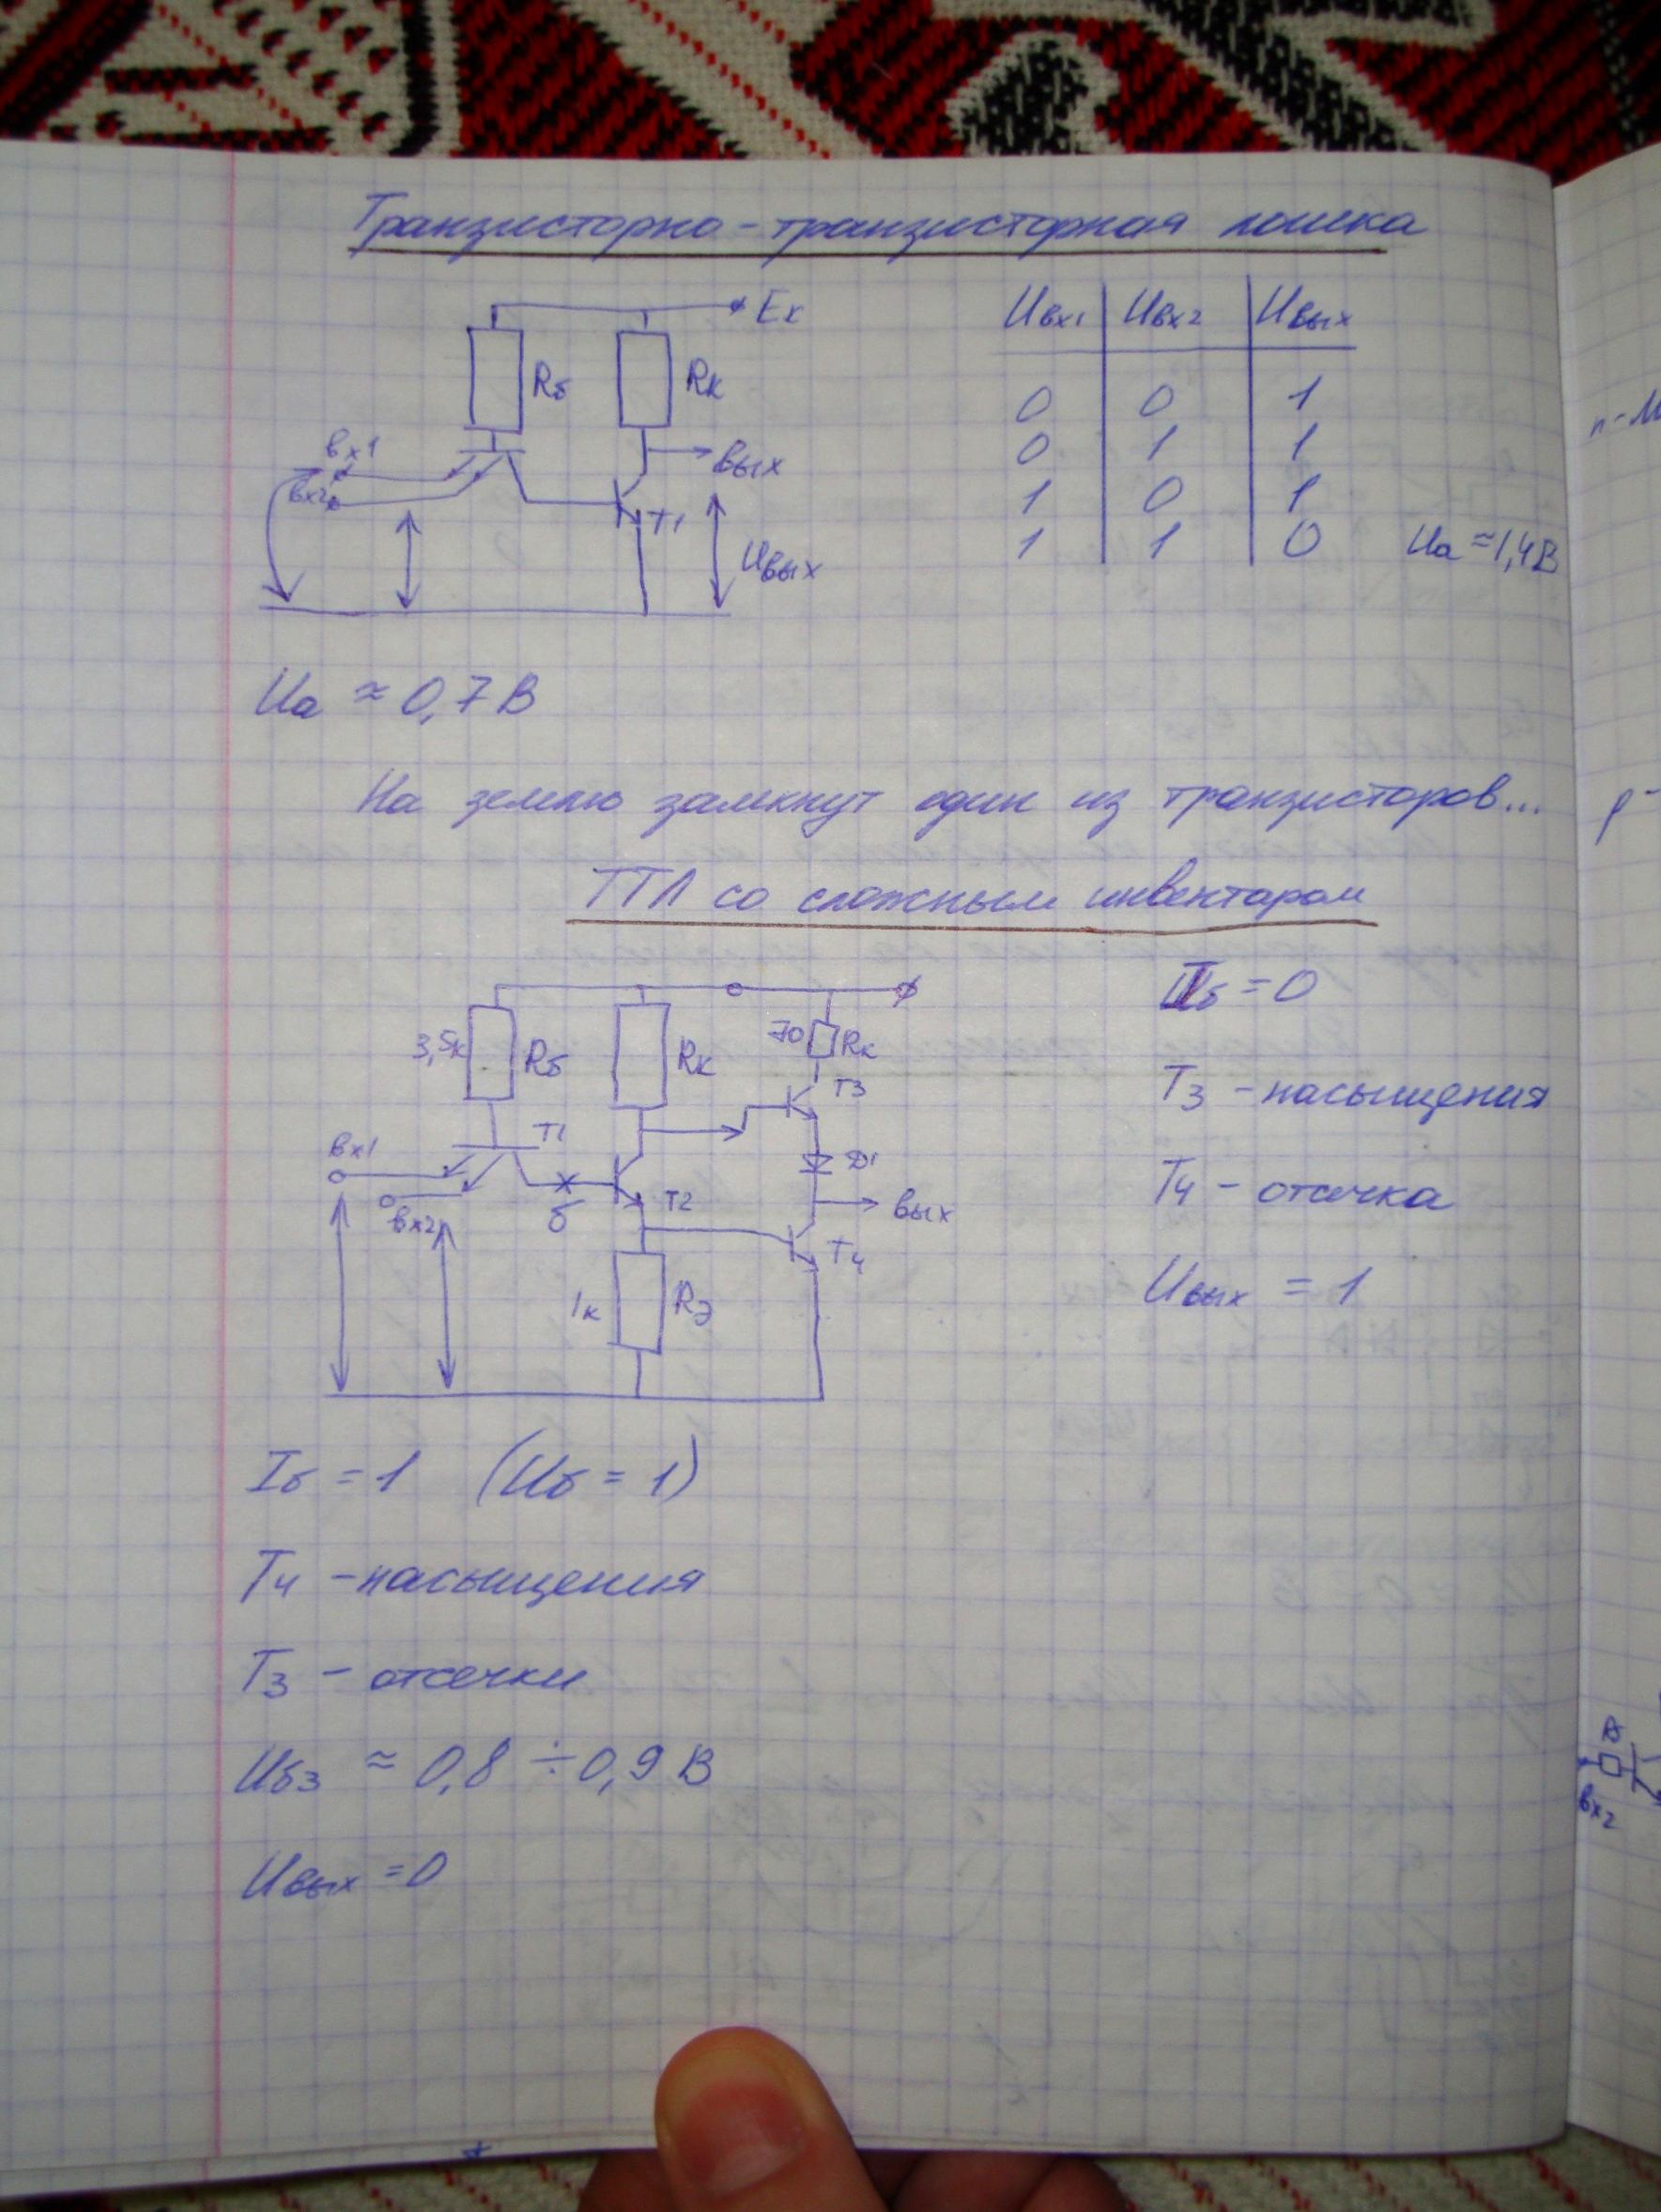 Транзисторно-транзисторная логика
Eк
Rб
Rк
вх1
вх2
вых
T1
Uвых
Uвх1 Uвх2 Uвых
0 0 1
0 1 1
1 0 1
1 1 0
Uа ≈ 1,4В
Uа ≈ 0,7 В
На землю замкнут один из транзисторов...
ТТЛ со сложным инвектаром
3,5к
Rб
Rк
70
Rк
T3
T1
вх1
вх2
б
T2
D1
вых
T4
1к
Rэ
Iб = 0
T3 - насыщения
T4 - отсечка
Uвых = 1
Iб = 1 (Uб = 1)
T4 - насыщения
T3 - отсечки
Uбэ ≈ 0,8 ÷ 0,9 В
Uвых = 0
n-М
p-
R
вх2